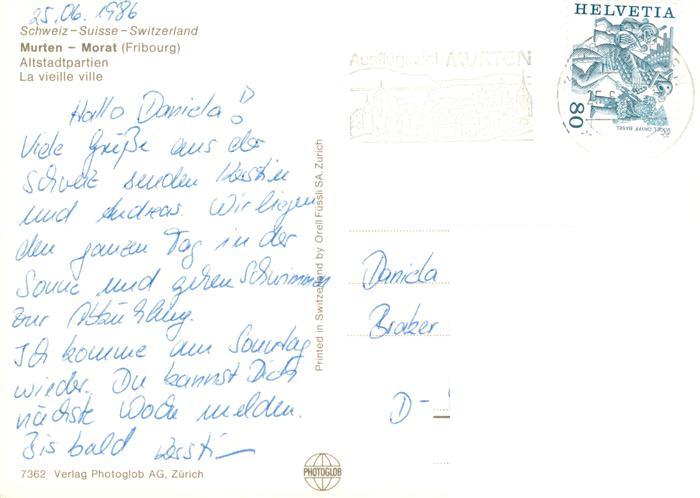 25.06.1986
Schweiz – Suisse – Switzerland
Murten – Morat (Fribourg)
Altstadtpartien
La vieille ville
Hallo Daniela!
Viele Grüße aus der
Schweiz senden Kerstin
und Andreas. Wir liegen
den ganzen Tag in der
Sonne und gehen Schwimmen
zur Abkühlung.
Ich komme am Sonntag
wieder. Du kannst Dich
nächste Woche melden.
Bis bald Kerstin
7362 Verlag Photoglob AG, Zürich
Printed in Switzerland by Orell Füssli SA, Zürich
PHOTOGLOB
Ausflugsziel MURTEN
HELVETIA
80
VOGEL GRYFF BASEL
Daniela
D-